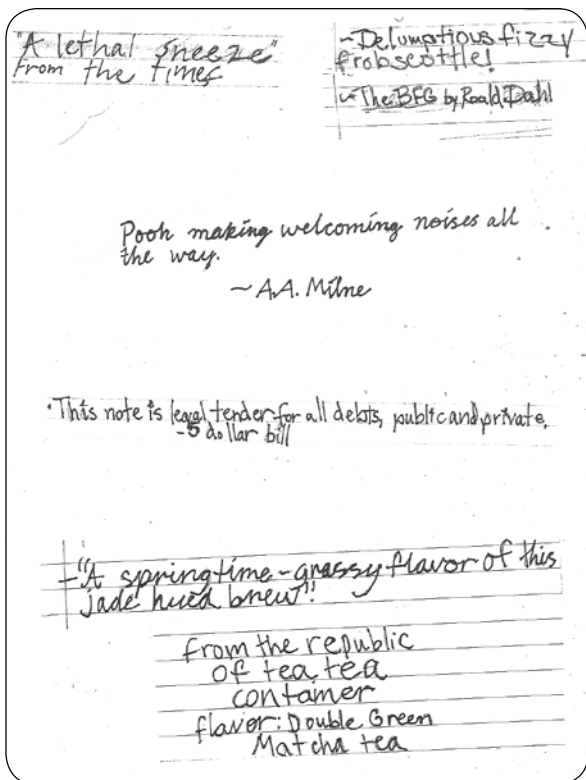 "A lethal sneeze"
from the times
~Delumptious fizzy
frobscottle!
~The BFG by Roald Dahl
Pooh making welcoming noises all
the way.
~A.A. Milne
·This note is legal tender for all debts, public and private.
-5 dollar bill
-"A springtime-grassy flavor of this
jade hued brew"!
from the republic
of tea, tea
container
flavor: Double Green
Matcha tea